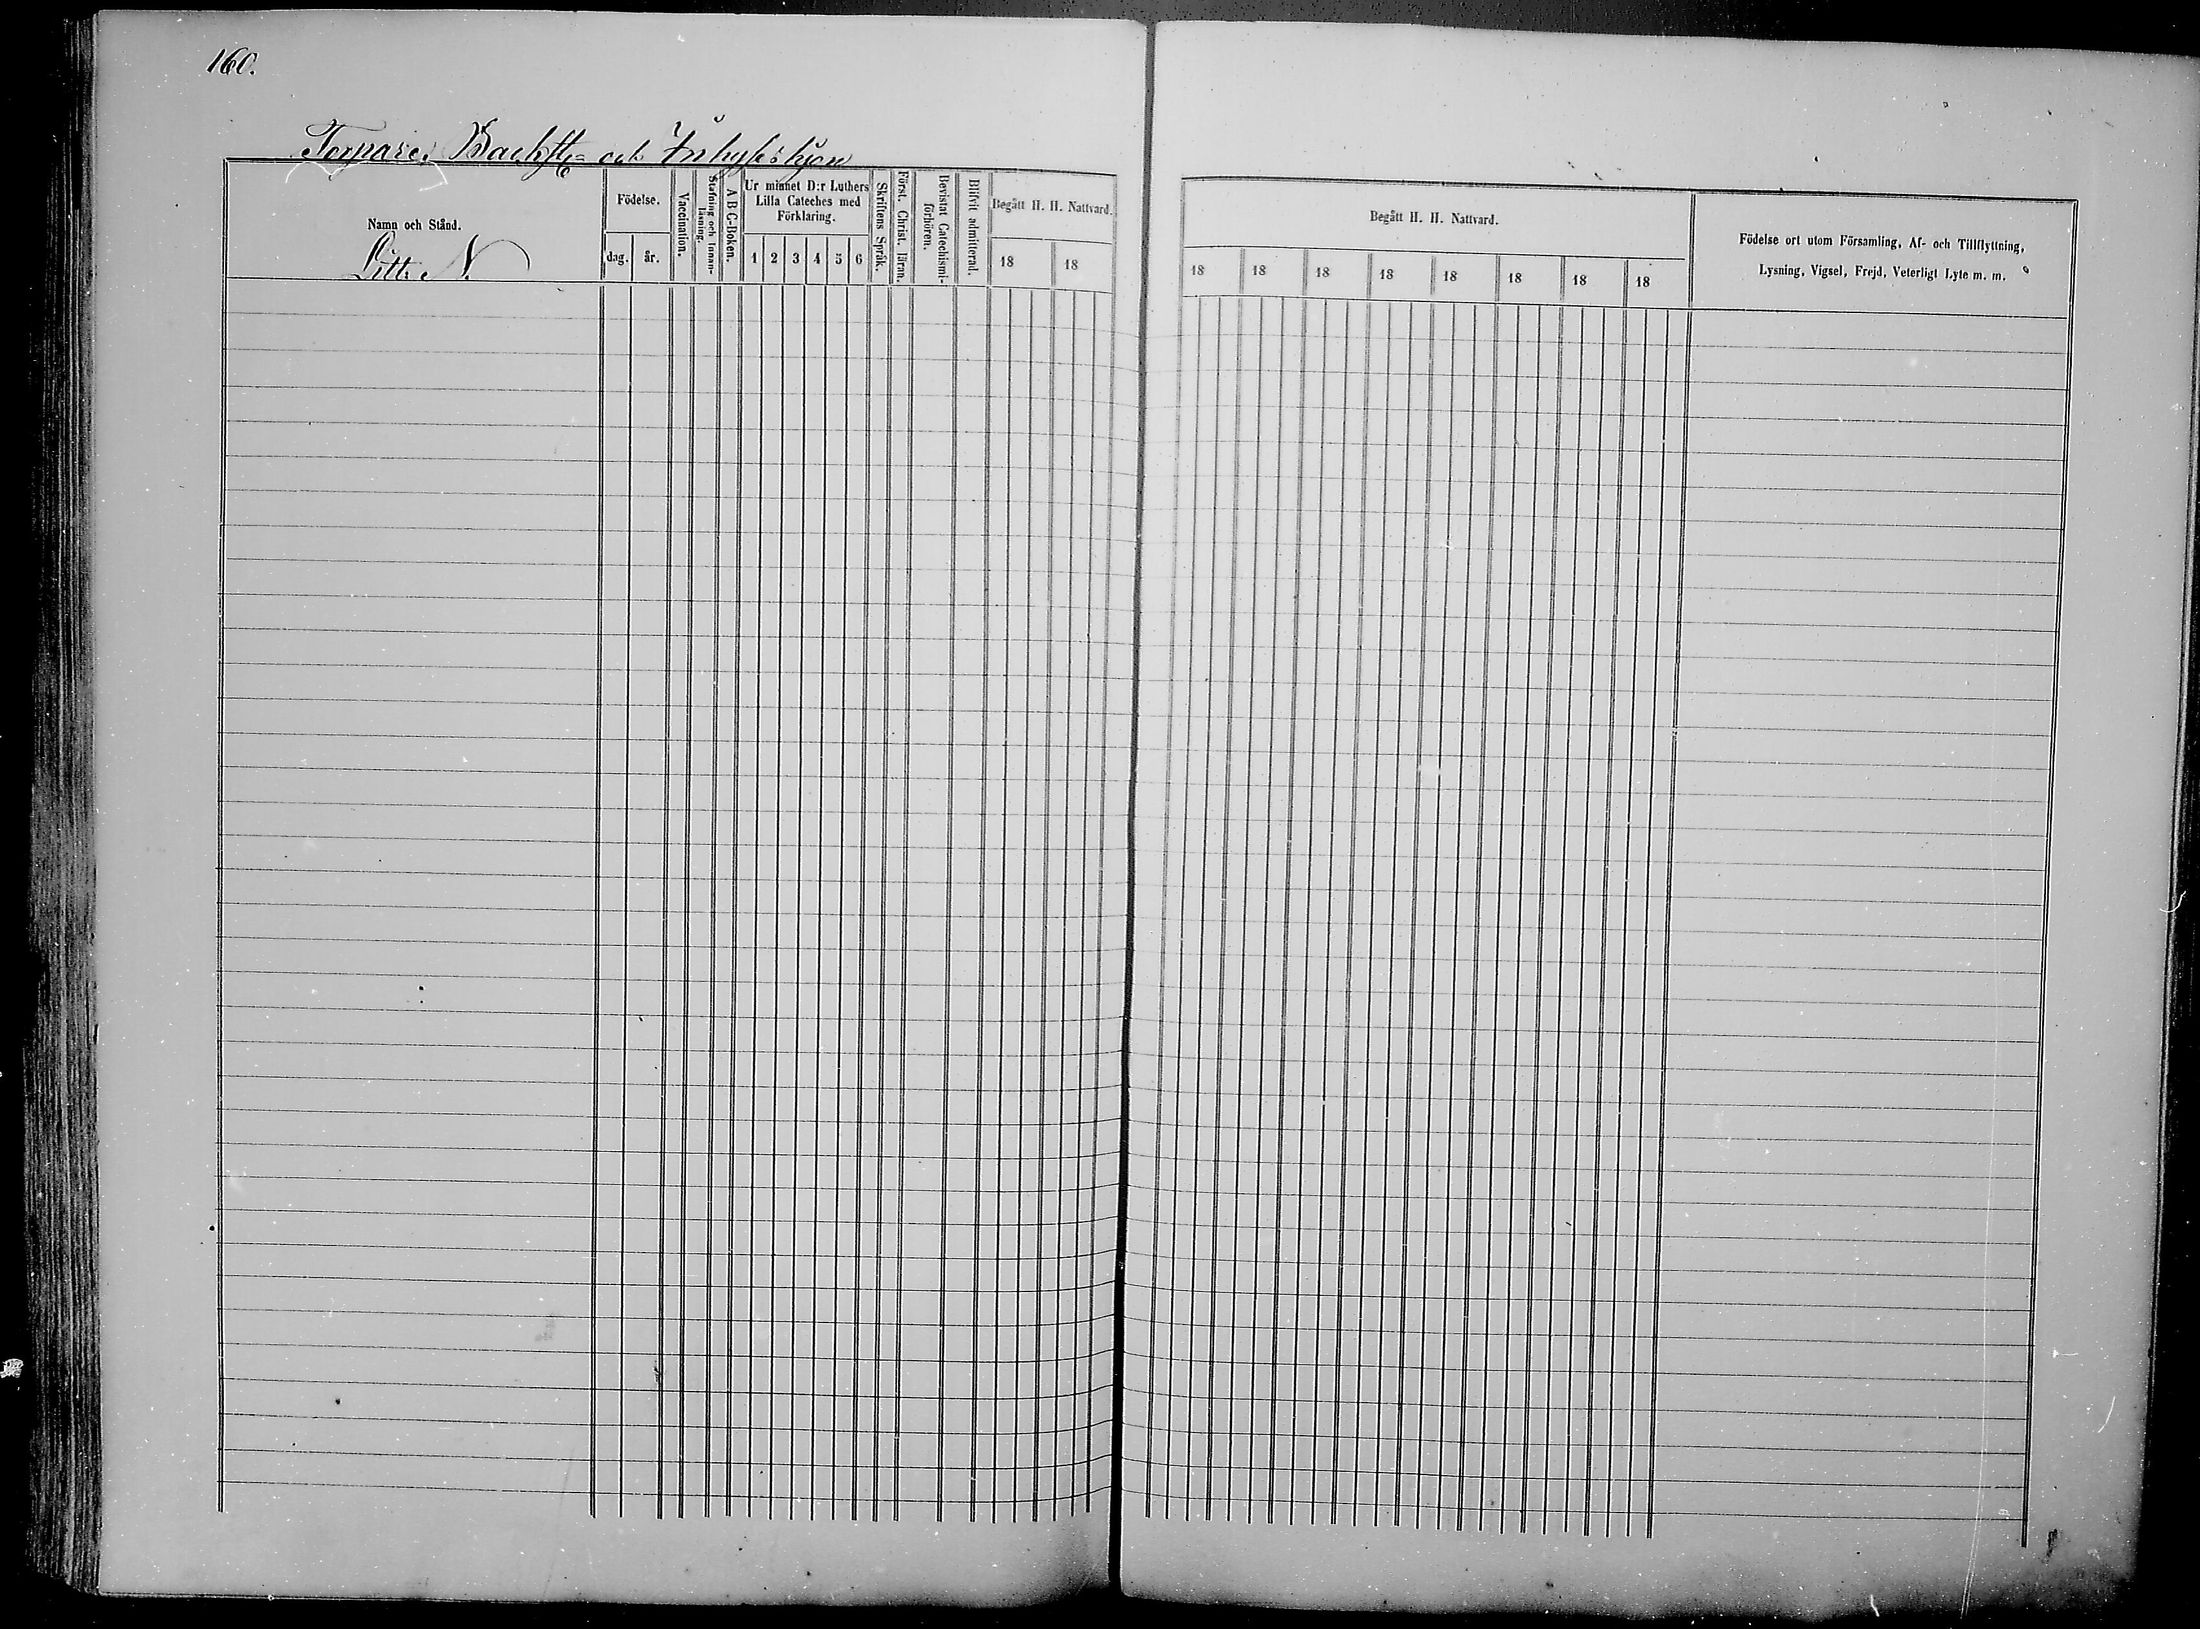 160.
Torpare, Backstu- och Inhyseshjon
Namn och Stånd.
Litt. N.
Födelse.
dag. år.
Vaccination.
Stafning och Innan-
läsning.
A B C-Boken.
Ur minnet D:r Luthers
Lilla Cateches med
Förklaring.
1 2 3 4 5 6
Skriftens Språk.
Först. Christ. läran.
Bevistat Catechismi-
förhören.
Blifvit admitterad.
Begått H. H. Nattvard.
18 18
Begått H. H. Nattvard.
18 18 18 18 18 18 18 18
Födelse ort utom Församling, Af- och Tillflyttning,
Lysning, Vigsel, Frejd, Veterligt Lyte m. m.